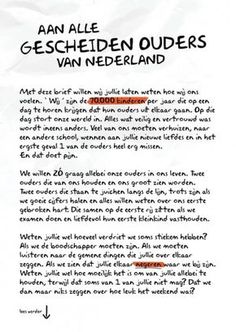 AAN ALLE
GESCHEIDEN OUDERS
VAN NEDERLAND
Met deze brief willen wij jullie laten weten hoe wij ons
voelen. 'Wij' zijn de 70.000 kinderen per jaar die op een
dag te horen krijgen dat hun ouders uit elkaar gaan. Op die
dag stort onze wereld in. Alles wat veilig en vertrouwd was
wordt ineens anders. Veel van ons moeten verhuizen, naar
een andere school, wennen aan jullie nieuwe liefdes en in het
ergste geval 1 van de ouders heel erg missen.
En dat doet pijn.
We willen ZÓ graag allebei onze ouders in ons leven. Twee
ouders die van ons houden en ons groot zien worden.
Twee ouders die staan te juichen langs de lijn, trots zijn als
we goeie cijfers halen en alles willen weten over ons eerste
gebroken hart. Die samen op de eerste rij zitten als we
examen doen en liefdevol hun eerste kleinkind vasthouden.
Weten jullie wel hoeveel verdriet we soms stiekem hebben?
Als we de boodschapper moeten zijn. Als we moeten
luisteren naar de gemene dingen die jullie over elkaar
zeggen. Als we zien dat jullie elkaar negeren waar we bij zijn.
Weten jullie wel hoe moeilijk het is om van jullie allebei te
houden, terwijl dat soms van 1 van jullie niet mag? Dat we
dan maar niks zeggen over hoe leuk het weekend was?
lees verder ↓